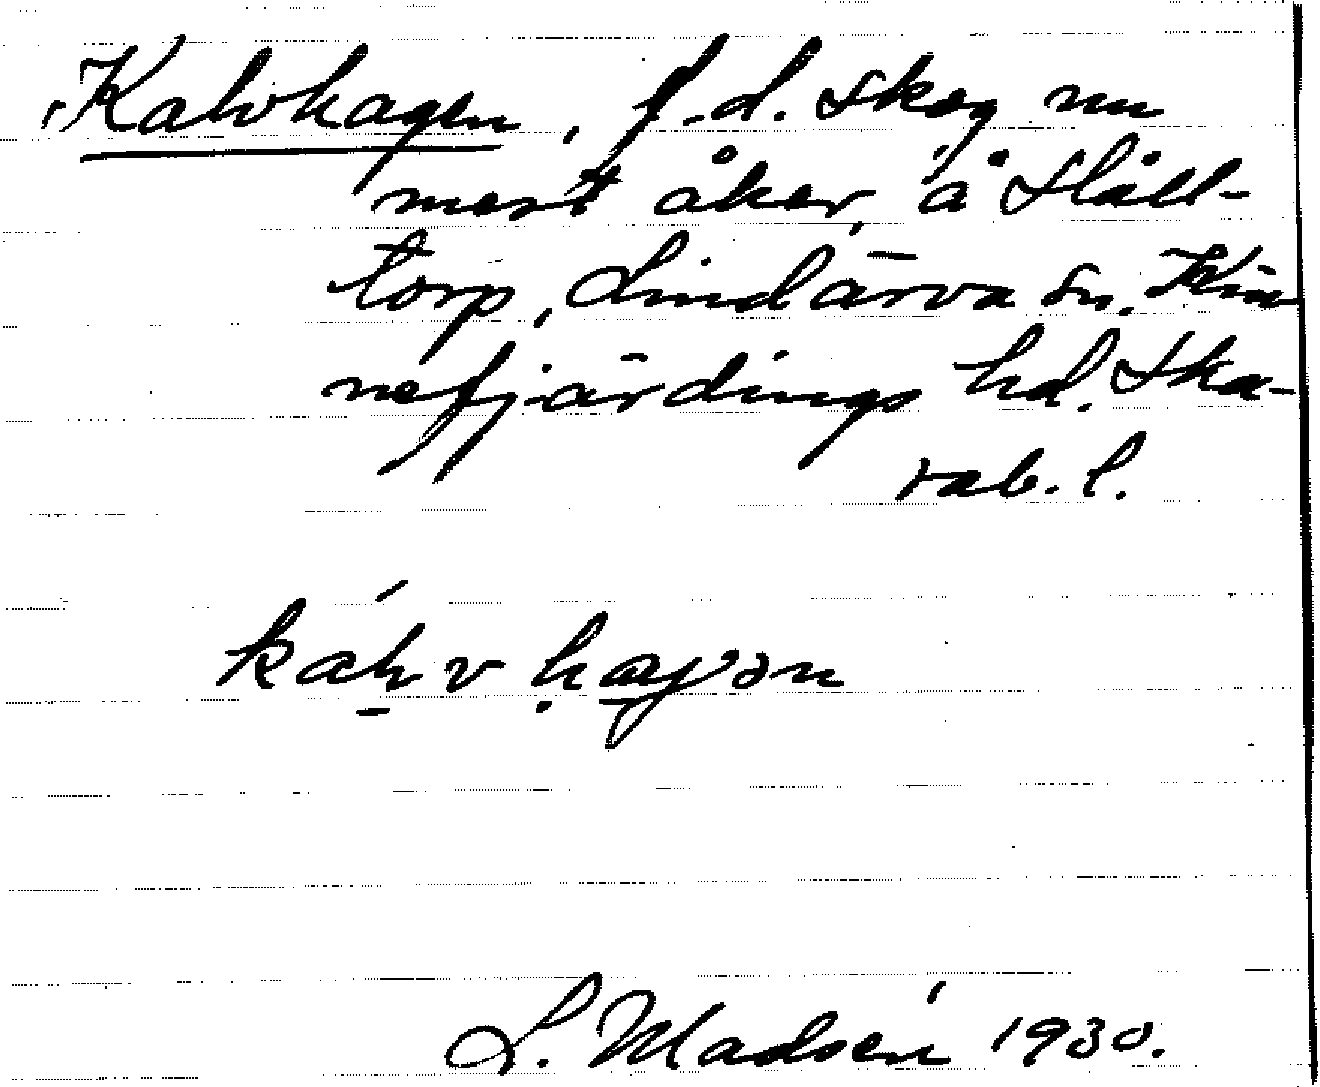 Kalvhagen, f.d. skog nu
mest åker, å Håll-
torp, Lindärva sn. Kin
nefjärdings hd. Ska-
rab. l.
L. Madsén 1930.